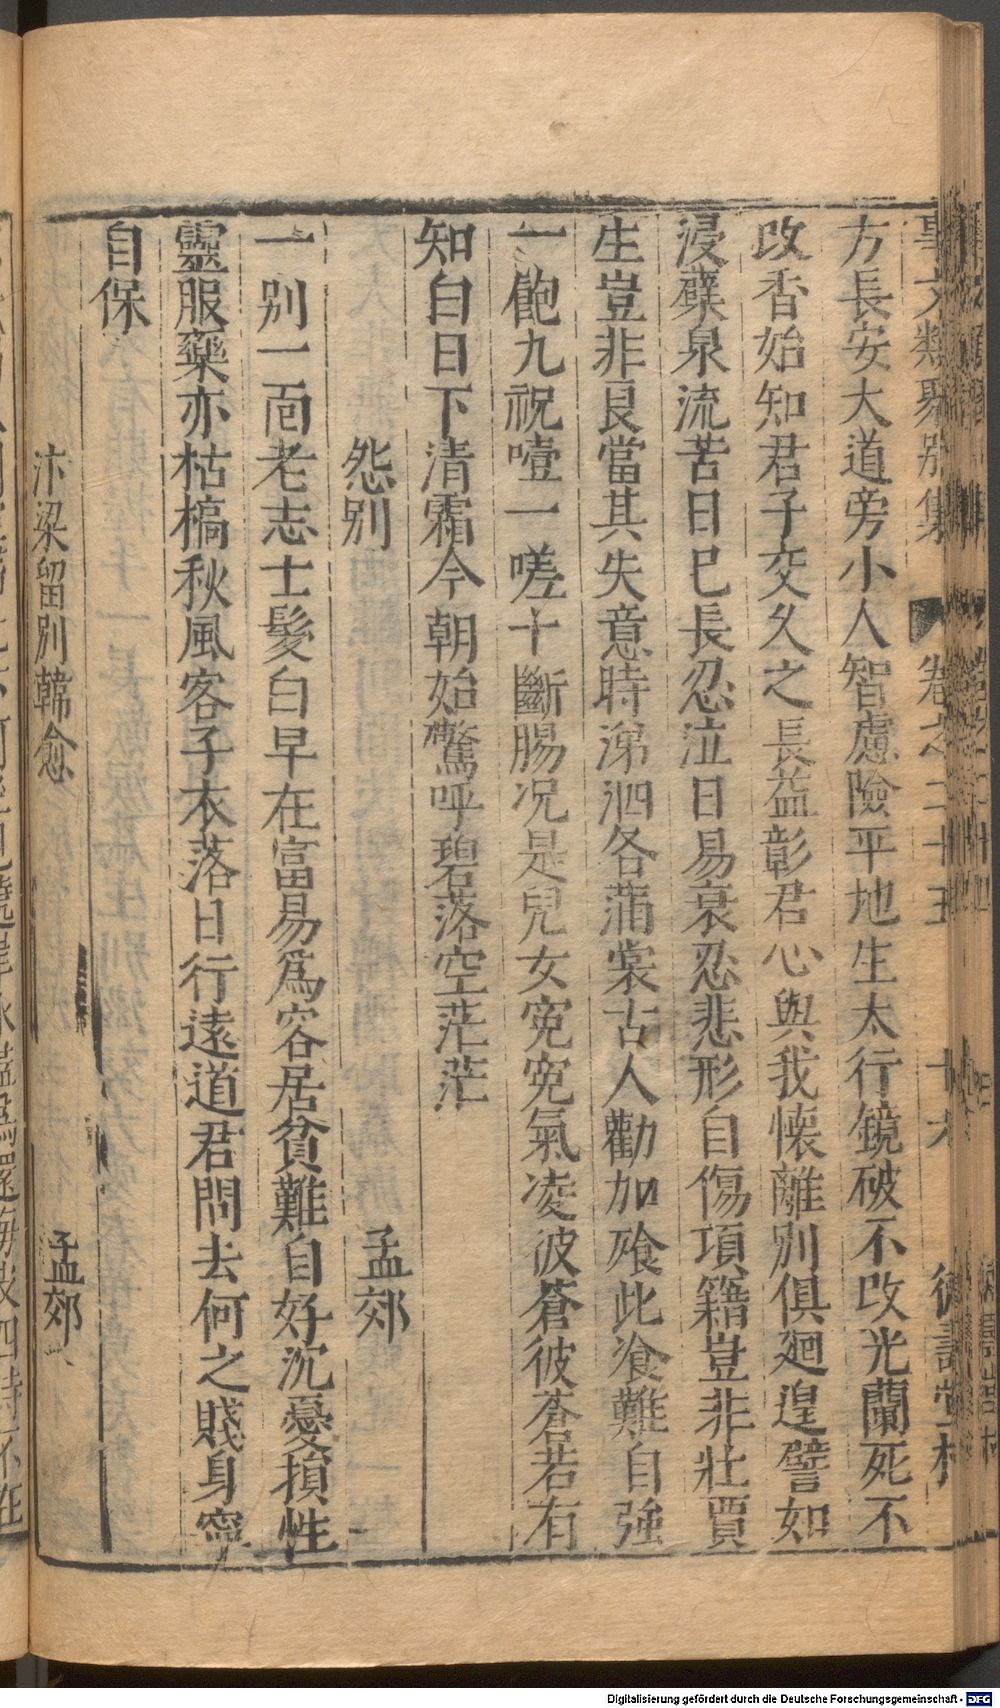 事文類聚別集 卷之二十五 十六
方長安大道旁小人智慮險平地生太行鏡破不改光蘭死不
改香始知君子交久之長益彰君心與我懷離別俱廻遑譬如
浸蘗泉流苦日已長忍泣日易衰忍悲形自傷項籍豈非壯賈
生豈非良當其失意時涕泗各蒲裳古人勸加飱此飡難自強
一飽九祝噎一嗟十斷腸况是兒女寃寃氣凌彼蒼彼蒼若有
知白日下清霜今朝始驚呼碧落空茫茫
怨别 孟郊
一别一囬老志士髮白早在富易爲容居貧難自好沉憂損性
靈服藥亦枯槁秋風客子衣落日行遠道君問去何之賤身寧
自保
汴梁留别韓愈 孟郊
Digitalisierung gefördert durch die Deutsche Forschungsgemeinschaft - DFG